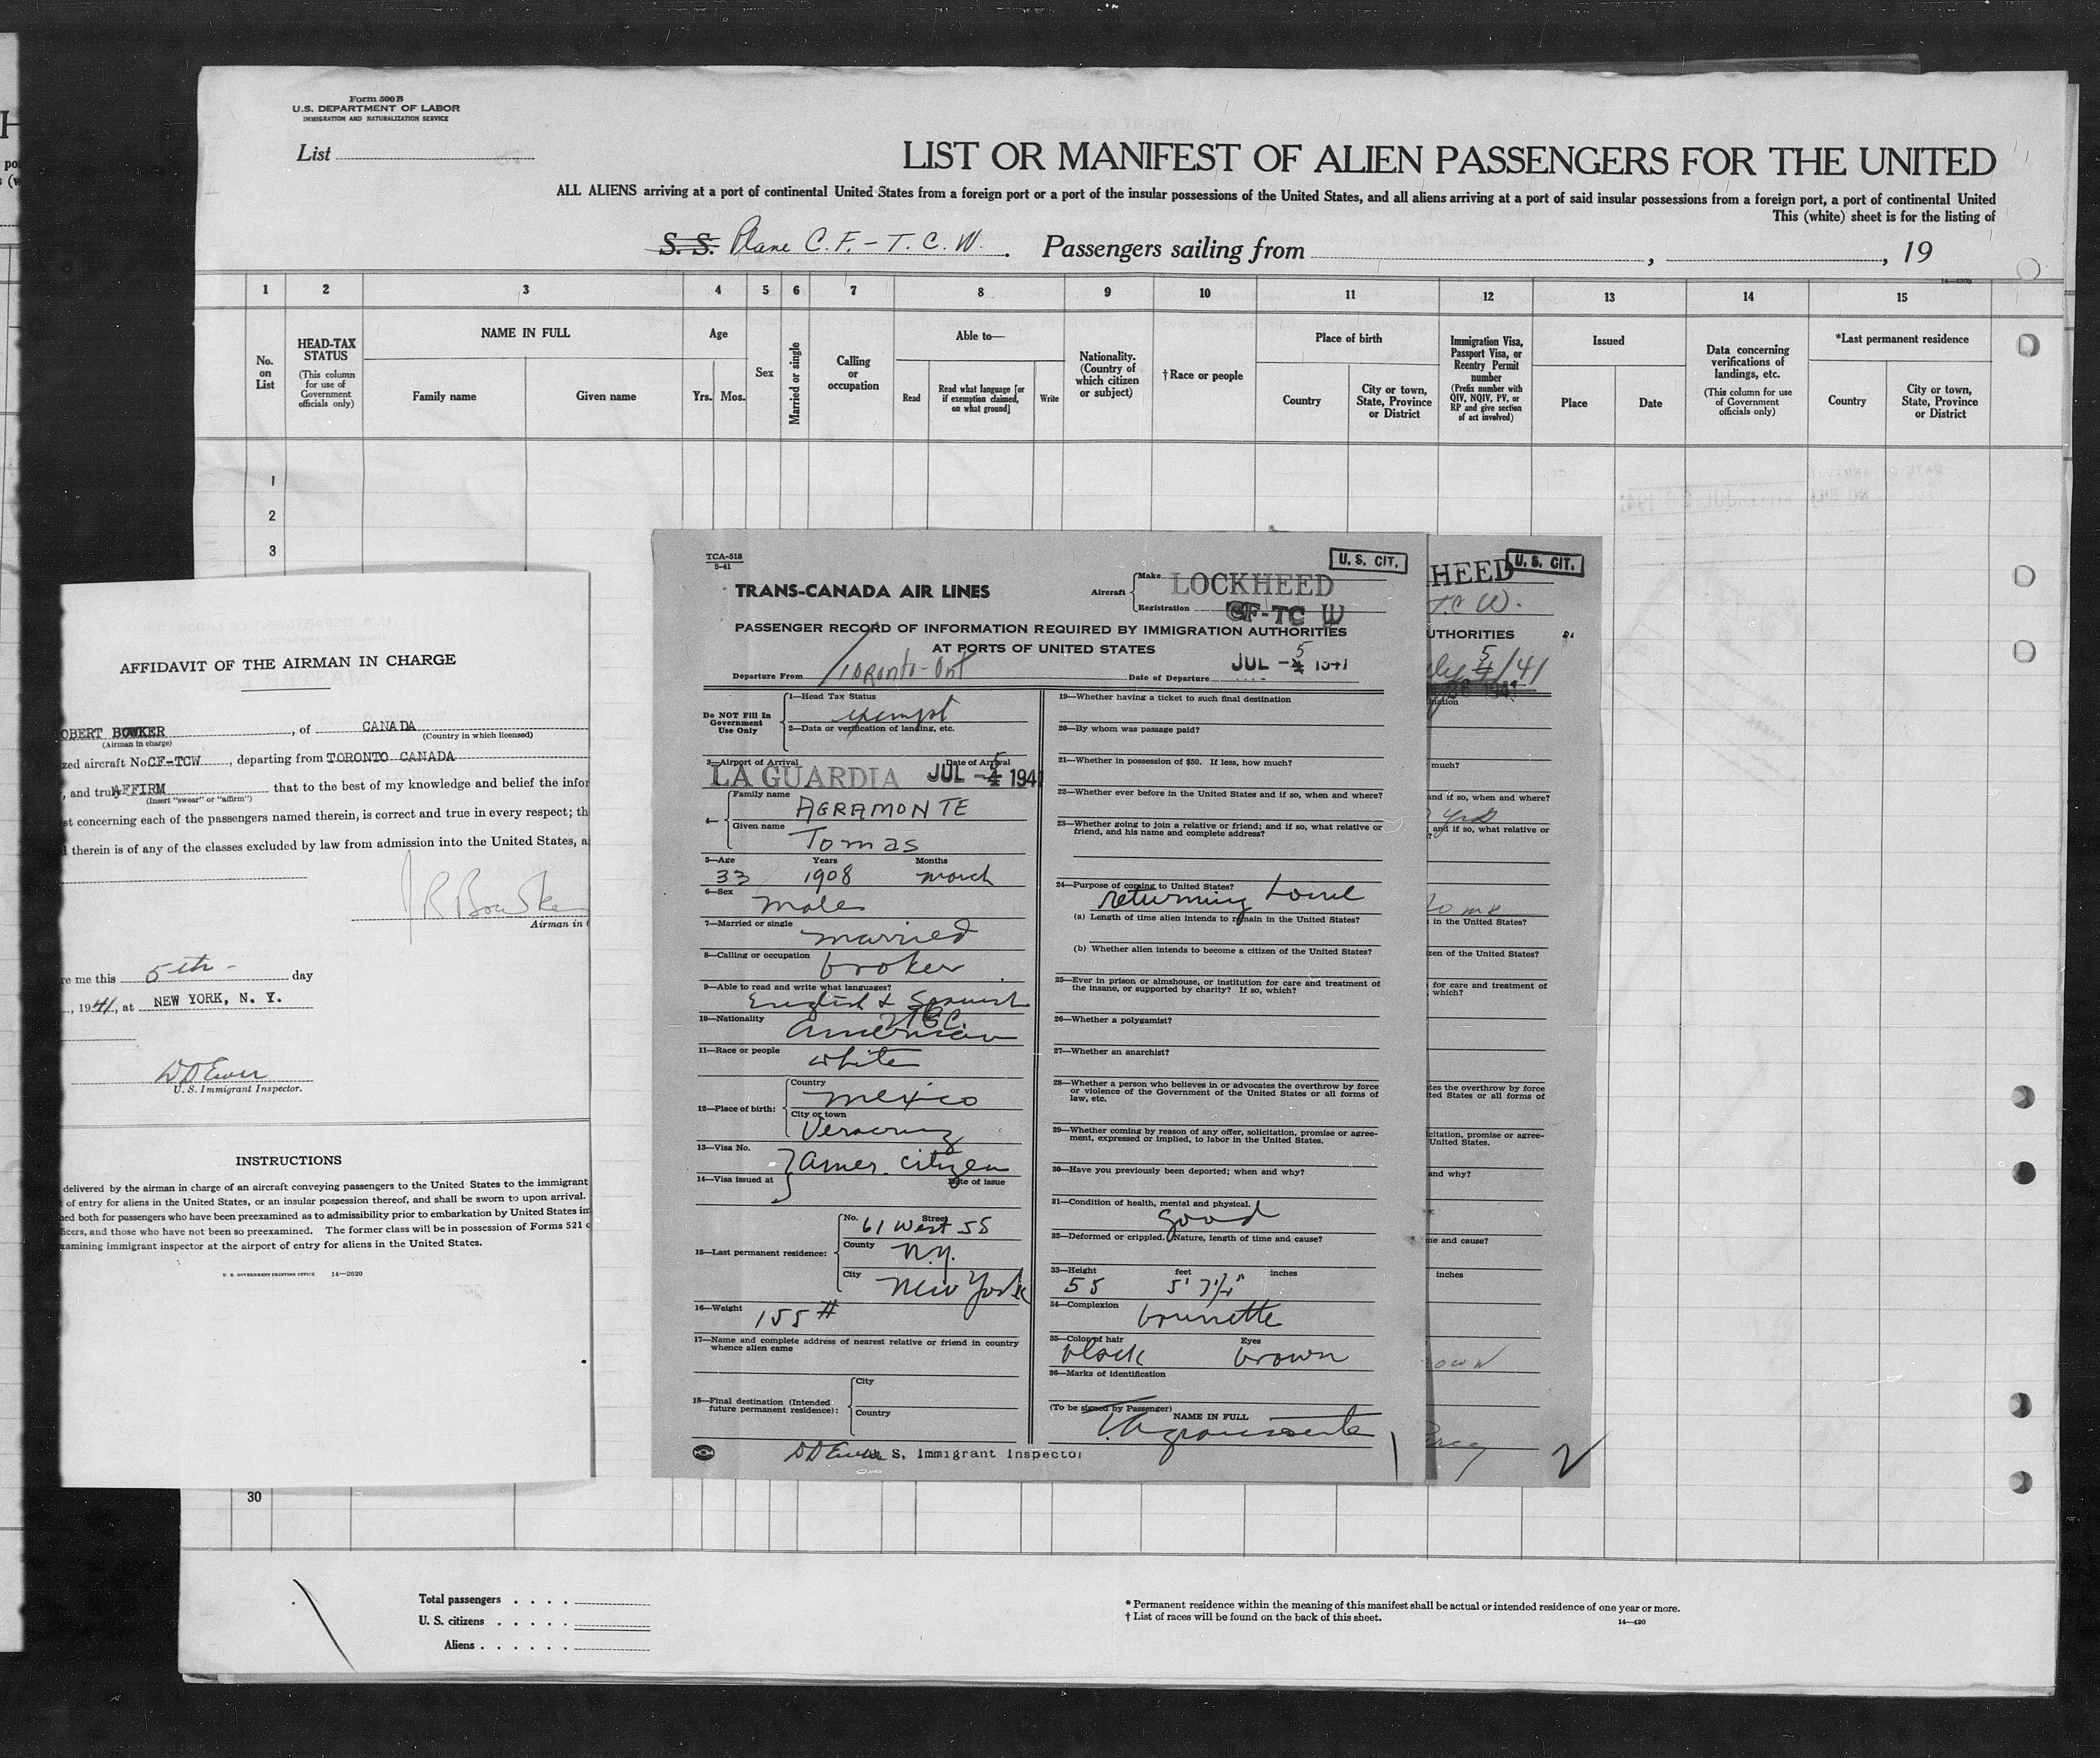 Form 500 B
U.S. DEPARTMENT OF LABOR
IMMIGRATION AND NATURALIZATION SERVICE
List
LIST OR MANIFEST OF ALIEN PASSENGERS FOR THE UNITED
ALL ALIENS arriving at a port of continental United States from a foreign port or a port of the insular possessions of the United States, and all aliens arriving at a port of said insular possessions from a foreign port, a port of continental United
This (white) sheet is for the listing of
S. S. Plane C.F. - T. C. W. Passengers sailing from , , 19
1 2 3 4 5 6 7 8 9 10 11 12 13 14 15
No. on List
HEAD-TAX STATUS
(This column for use of Government officials only)
NAME IN FULL
Family name Given name
Age
Yrs. Mos.
Sex
Married or single
Calling or occupation
Able to—
Read
Read what language [or if exemption claimed, on what ground]
Write
Nationality. (Country of which citizen or subject)
†Race or people
Place of birth
Country
City or town, State, Province or District
Immigration Visa, Passport Visa, or Reentry Permit number
(Prefix number with QIV, NQIV, PV, or RP and give section of act involved)
Issued
Place Date
Data concerning verifications of landings, etc.
(This column for use of Government officials only)
*Last permanent residence
Country
City or town, State, Province or District
1
2
3
AFFIDAVIT OF THE AIRMAN IN CHARGE
OBERT BOWKER , of CANADA
(Airman in charge) (Country in which licensed)
zed aircraft No. CF-TCW , departing from TORONTO CANADA
, and truly AFFIRM that to the best of my knowledge and belief the infor
(Insert "swear" or "affirm")
st concerning each of the passengers named therein, is correct and true in every respect; th
d therein is of any of the classes excluded by law from admission into the United States, a
Airman in
re me this 5th - day
, 1941, at NEW YORK, N. Y.
U. S. Immigrant Inspector.
INSTRUCTIONS
delivered by the airman in charge of an aircraft conveying passengers to the United States to the immigrant
of entry for aliens in the United States, or an insular possession thereof, and shall be sworn to upon arrival.
ned both for passengers who have been preexamined as to admissibility prior to embarkation by United States im
ficers, and those who have not been so preexamined. The former class will be in possession of Forms 521
xamining immigrant inspector at the airport of entry for aliens in the United States.
U. S. GOVERNMENT PRINTING OFFICE 14—2620
TCA-518
5-41
U. S. CIT.
TRANS-CANADA AIR LINES
Aircraft Make LOCKHEED
Registration CF-TC W
PASSENGER RECORD OF INFORMATION REQUIRED BY IMMIGRATION AUTHORITIES
AT PORTS OF UNITED STATES
Departure From Toronto-Ont Date of Departure JUL - 5 1941
Do NOT Fill In Government Use Only
1—Head Tax Status
exempt
2—Data or verification of landing, etc.
3—Airport of Arrival Date of Arrival
LA GUARDIA JUL - 5 1941
4— Family name AGRAMONTE
Given name Tomas
5—Age Years Months
33 1908 march
6—Sex
male
7—Married or single
married
8—Calling or occupation
broker
9—Able to read and write what languages?
English & Spanish
10—Nationality
American
11—Race or people
white
12—Place of birth:
Country
Mexico
City or town
Veracruz
13—Visa No.
Amer. citizen
14—Visa issued at Date of issue
15—Last permanent residence:
No. 61 West 55 Street
County N.Y.
City New York
16—Weight 155 #
17—Name and complete address of nearest relative or friend in country
whence alien came
18—Final destination (Intended
future permanent residence):
City
Country
U. S. Immigrant Inspector
19—Whether having a ticket to such final destination
20—By whom was passage paid?
21—Whether in possession of $50. If less, how much?
22—Whether ever before in the United States and if so, when and where?
23—Whether going to join a relative or friend; and if so, what relative or
friend, and his name and complete address?
24—Purpose of coming to United States?
returning home
(a) Length of time alien intends to remain in the United States?
(b) Whether alien intends to become a citizen of the United States?
25—Ever in prison or almshouse, or institution for care and treatment of
the insane, or supported by charity? If so, which?
26—Whether a polygamist?
27—Whether an anarchist?
28—Whether a person who believes in or advocates the overthrow by force
or violence of the Government of the United States or all forms of
law, etc.
29—Whether coming by reason of any offer, solicitation, promise or agree-
ment, expressed or implied, to labor in the United States.
30—Have you previously been deported; when and why?
31—Condition of health, mental and physical.
good
32—Deformed or crippled. Nature, length of time and cause?
33—Height feet inches
34—Complexion
brunette
35—Color of hair Eyes
black brown
36—Marks of identification
(To be signed by Passenger)
NAME IN FULL
T. Agramonte
U. S. CIT.
HEED
TC W.
UTHORITIES
much?
and if so, when and where?
and if so, what relative or
in the United States?
zen of the United States?
for care and treatment of
which?
tes the overthrow by force
ted States or all forms of
icitation, promise or agree-
United States.
and why?
me and cause?
inches
2
30
Total passengers . . . .
U. S. citizens . . . . .
Aliens . . . . . .
* Permanent residence within the meaning of this manifest shall be actual or intended residence of one year or more.
† List of races will be found on the back of this sheet.
14—420